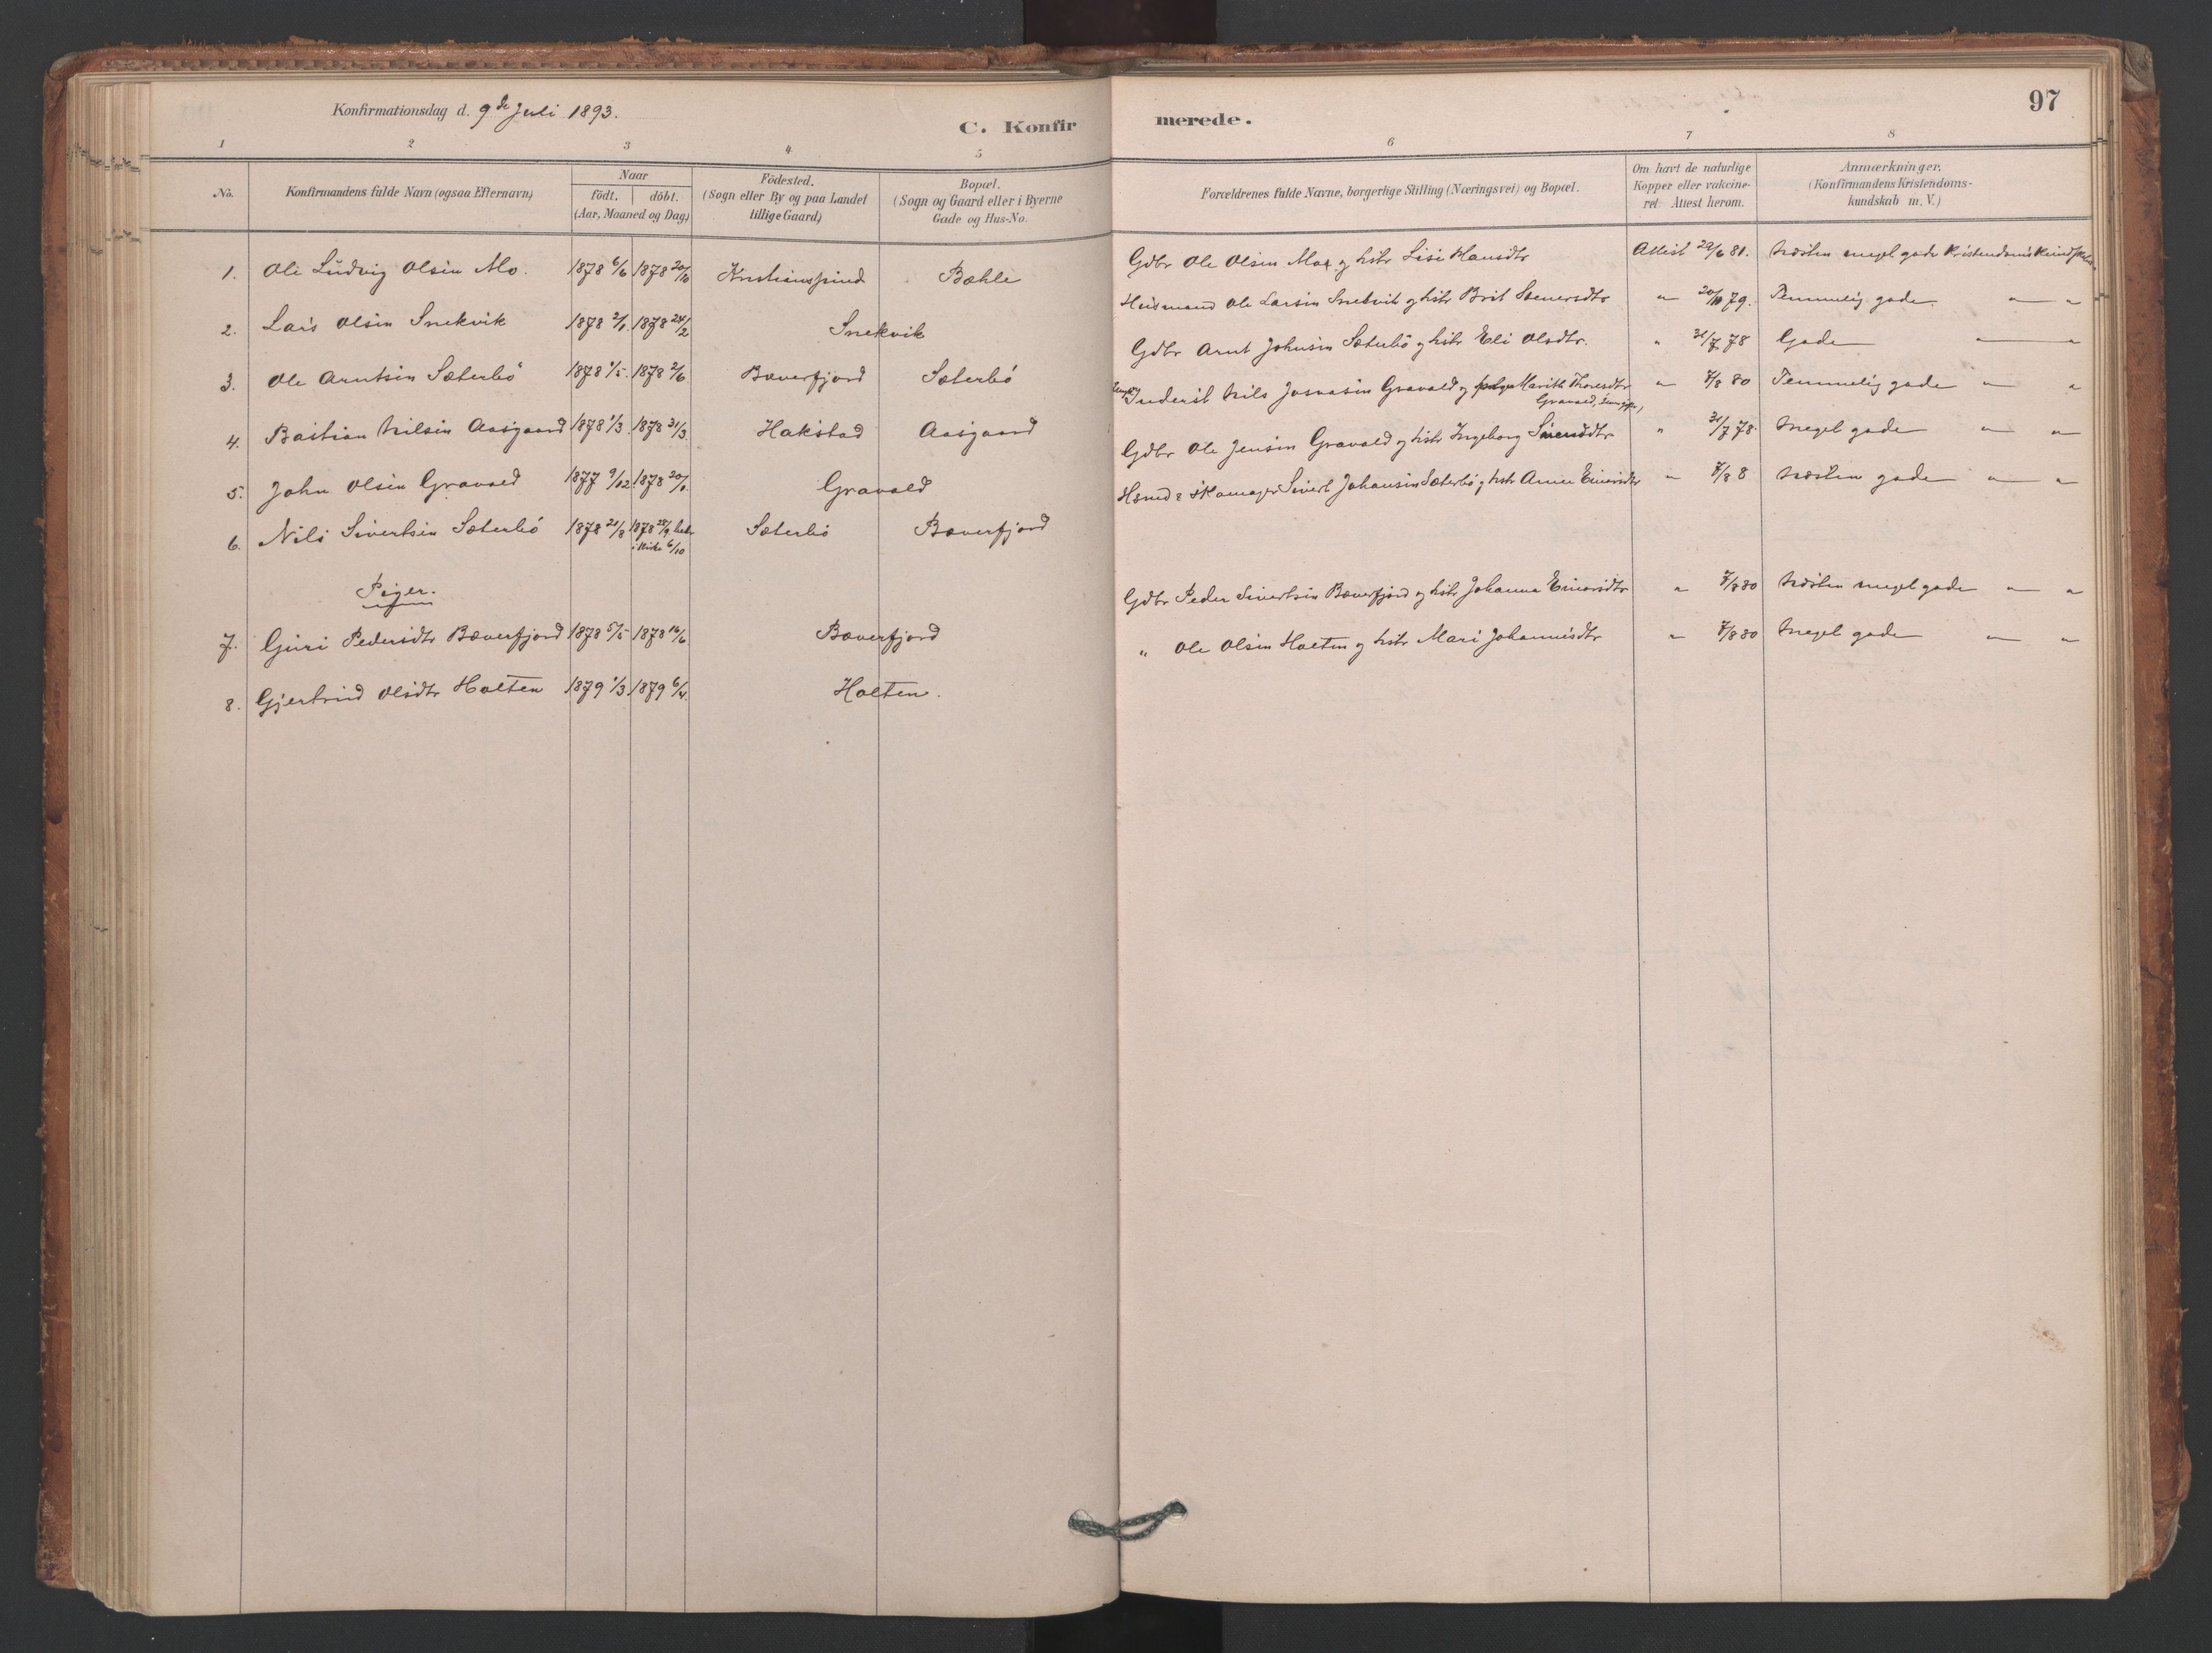 Konfirmationsdag d. 9de Juli 1893.
C. Konfirmerede.
97
1 2 3 4 5 6 7 8
No. Konfirmandens fulde Navn (ogsaa Efternavn) Naar födt. döbt. (Aar, Maaned og Dag) Födested. (Sogn eller By og paa Landet tillige Gaard) Bopæl. (Sogn og Gaard eller i Byerne Gade og Hus-No. Forældrenes fulde Navne, borgerlige Stilling (Næringsvei) og Bopæl. Om havt de naturlige Kopper eller vakcineret. Attest herom. Anmærkninger. (Konfirmandens Kristendomskundskab m.V.)
1. Ole Ludvig Olsen Mo. 1878 6/6 1878 20/10 Kristianssund Bæhle Gdbr Ole Olsen Mo og hstr Lisi Hansdtr Attest 22/6 81. Næsten meget gode Kristendomskundskaber
2. Lars Olsen Snekvik 1878 2/1 1878 24/2 Snekvik Husmand Ole Larsen Snekvik og hstr Brit Steenersdtr " 20/10 79. Temmelig gode " "
3. Ole Arntsen Sæterbö 1878 1/5 1878 2/6 Bæverfjord Sæterbö Gdbr Arnt Johnsen Sæterbö og hstr Eli Olsdtr. " 31/7 78 Gode " "
4. Bastian Nilsen Aasgaard 1878 1/3 1878 31/3 Hakstad Aasgaard Ungk Inderst Nils Jonasen Gravald og pige Marith Thoresdtr Gravald, " 7/8 80 Temmelig gode " "
5. John Olsen Gravald 1877 9/12 1878 20/1 Gravald Gdbr Ole Jensen Gravald og hstr Ingeborg Sivertsdtr " 31/7 78. Meget gode " "
6. Nils Sivertsen Sæterbö 1878 21/8 1878 22/9 bekr i Kirke 6/10 Sæterbö Bæverfjord Hsmd & Skomager Sivert Johansen Sæterbö og hstr Anne Einarsdtr " 7/8 8 Næsten gode " "
Piger.
7. Guri Pedersdtr Bæverfjord 1878 5/5 1878 16/6 Bæverfjord Gdbr Peder Sivertsen Bæverfjord og hstr Johanna Einarsdtr " 7/8 80 Næsten meget gode " "
8. Gjertrud Olsdtr Holten 1879 1/3 1879 6/4 Holten. " Ole Olsen Holten og hstr Mari Johannesdtr " 7/8 80 Meget gode " "